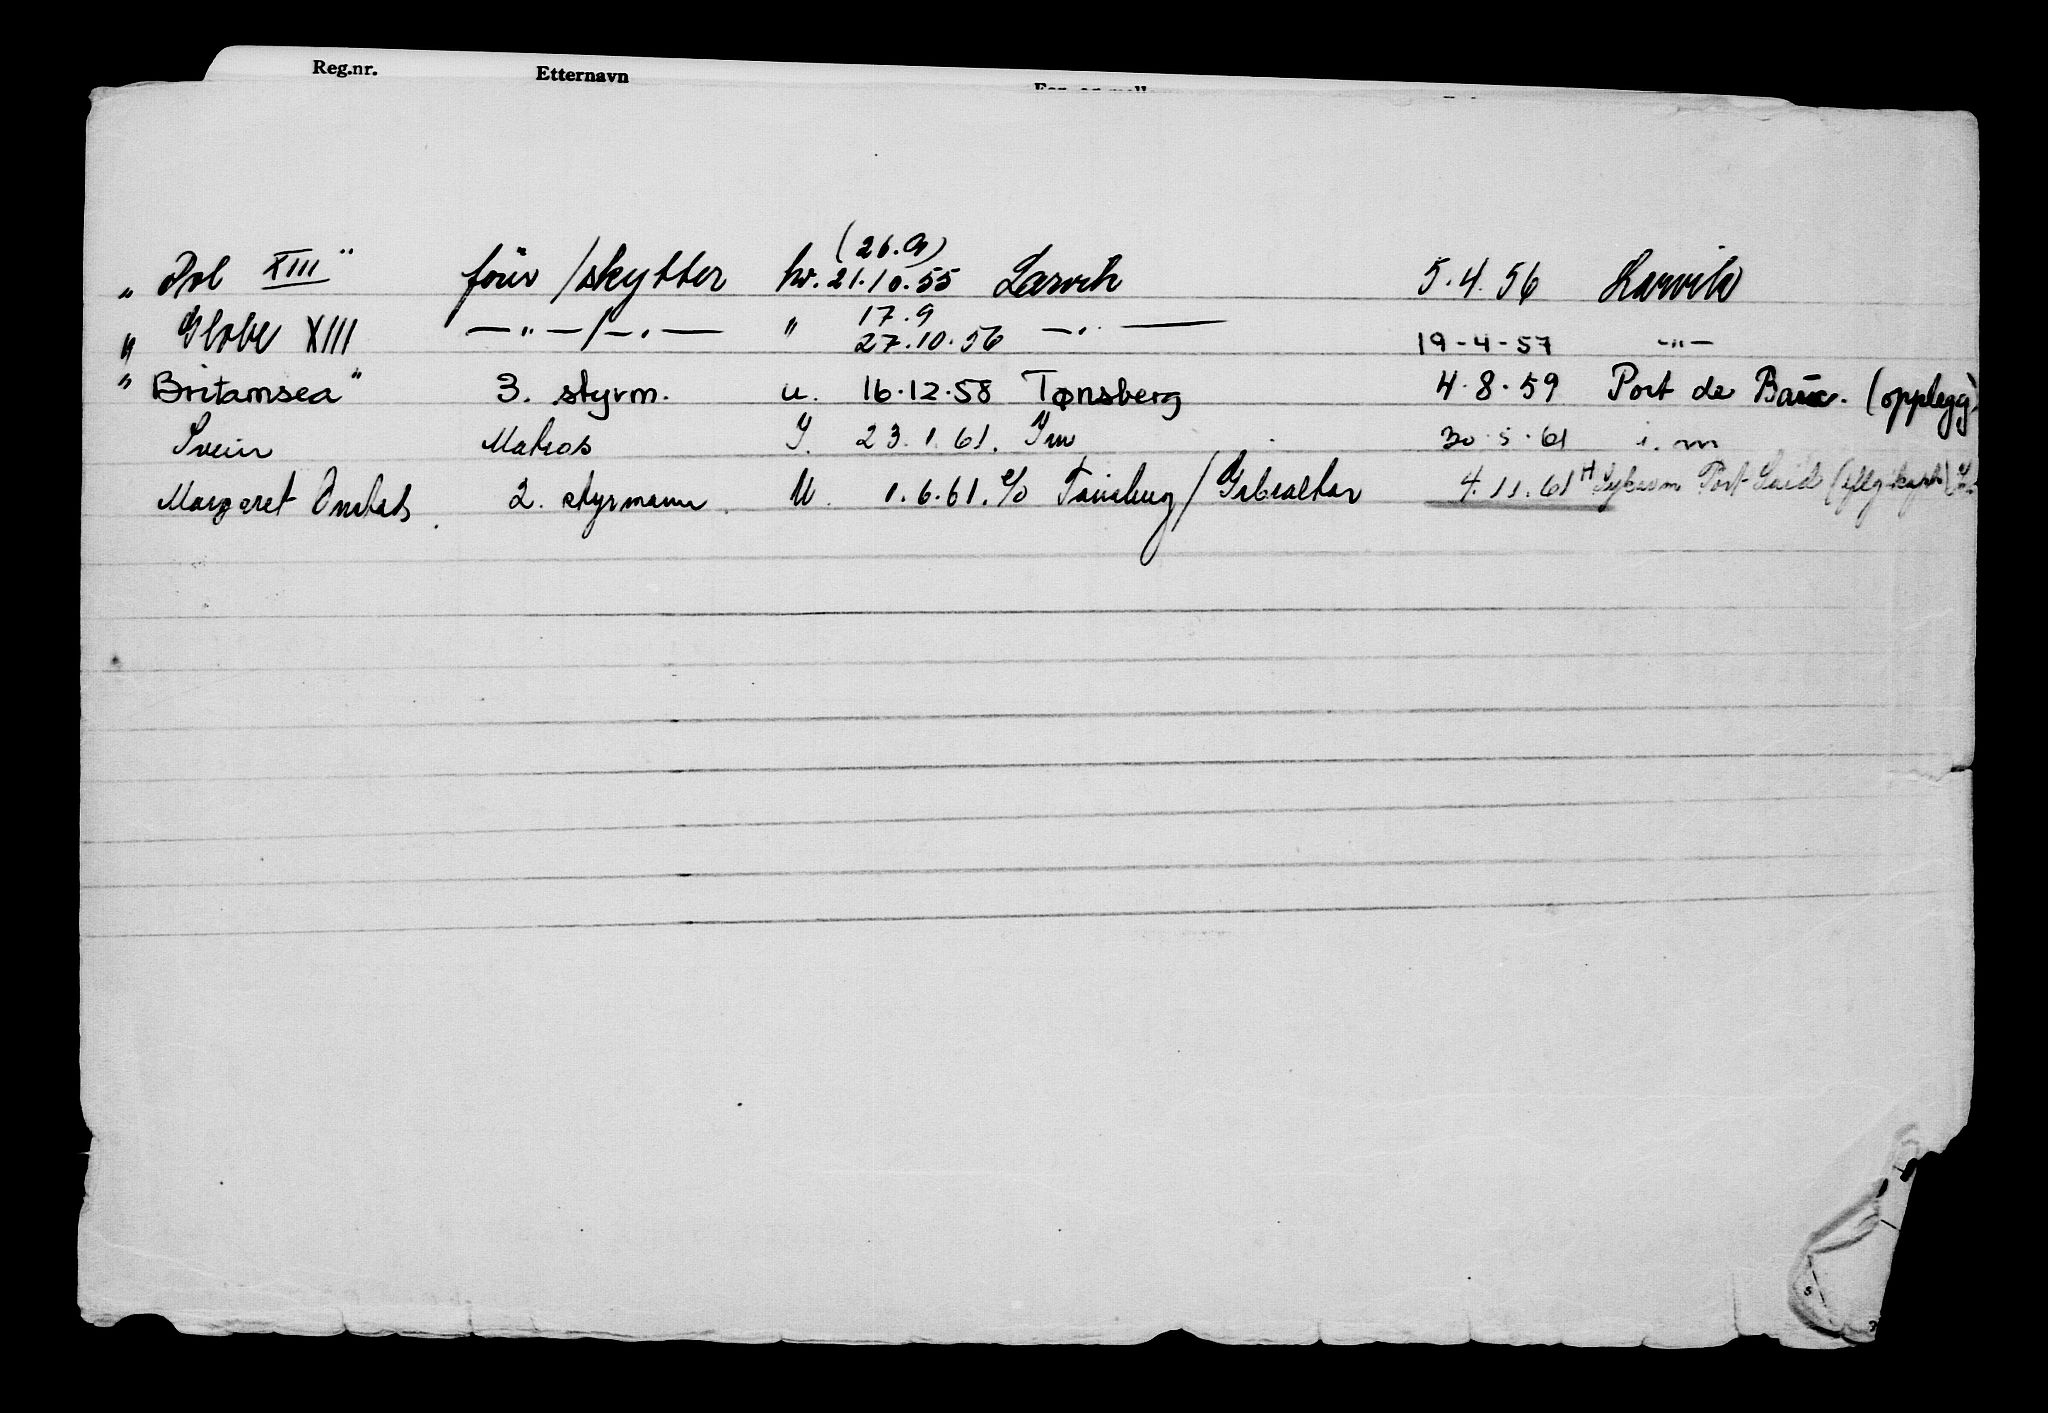 Reg.nr. Etternavn
(26.9)
" Pol XIII" förer /skytter hv. 21.10.55 Larvik 5.4.56 Larvik
17.9
" Globe XIII —"—/—"— " 27.10.56 —"— 19-4-57 —"—
" Britamsea" 3. styrm. u. 16.12.58 Tønsberg 4.8.59 Port de Bouc. (opplegg)
Svein Matros I. 23.1.61. I m 30.5.61 i. m
Margaret Onstad. 2. styrmann. U. 1.6.61. Tønsberg / Gibraltar 4.11.61 Sykdom Port Said